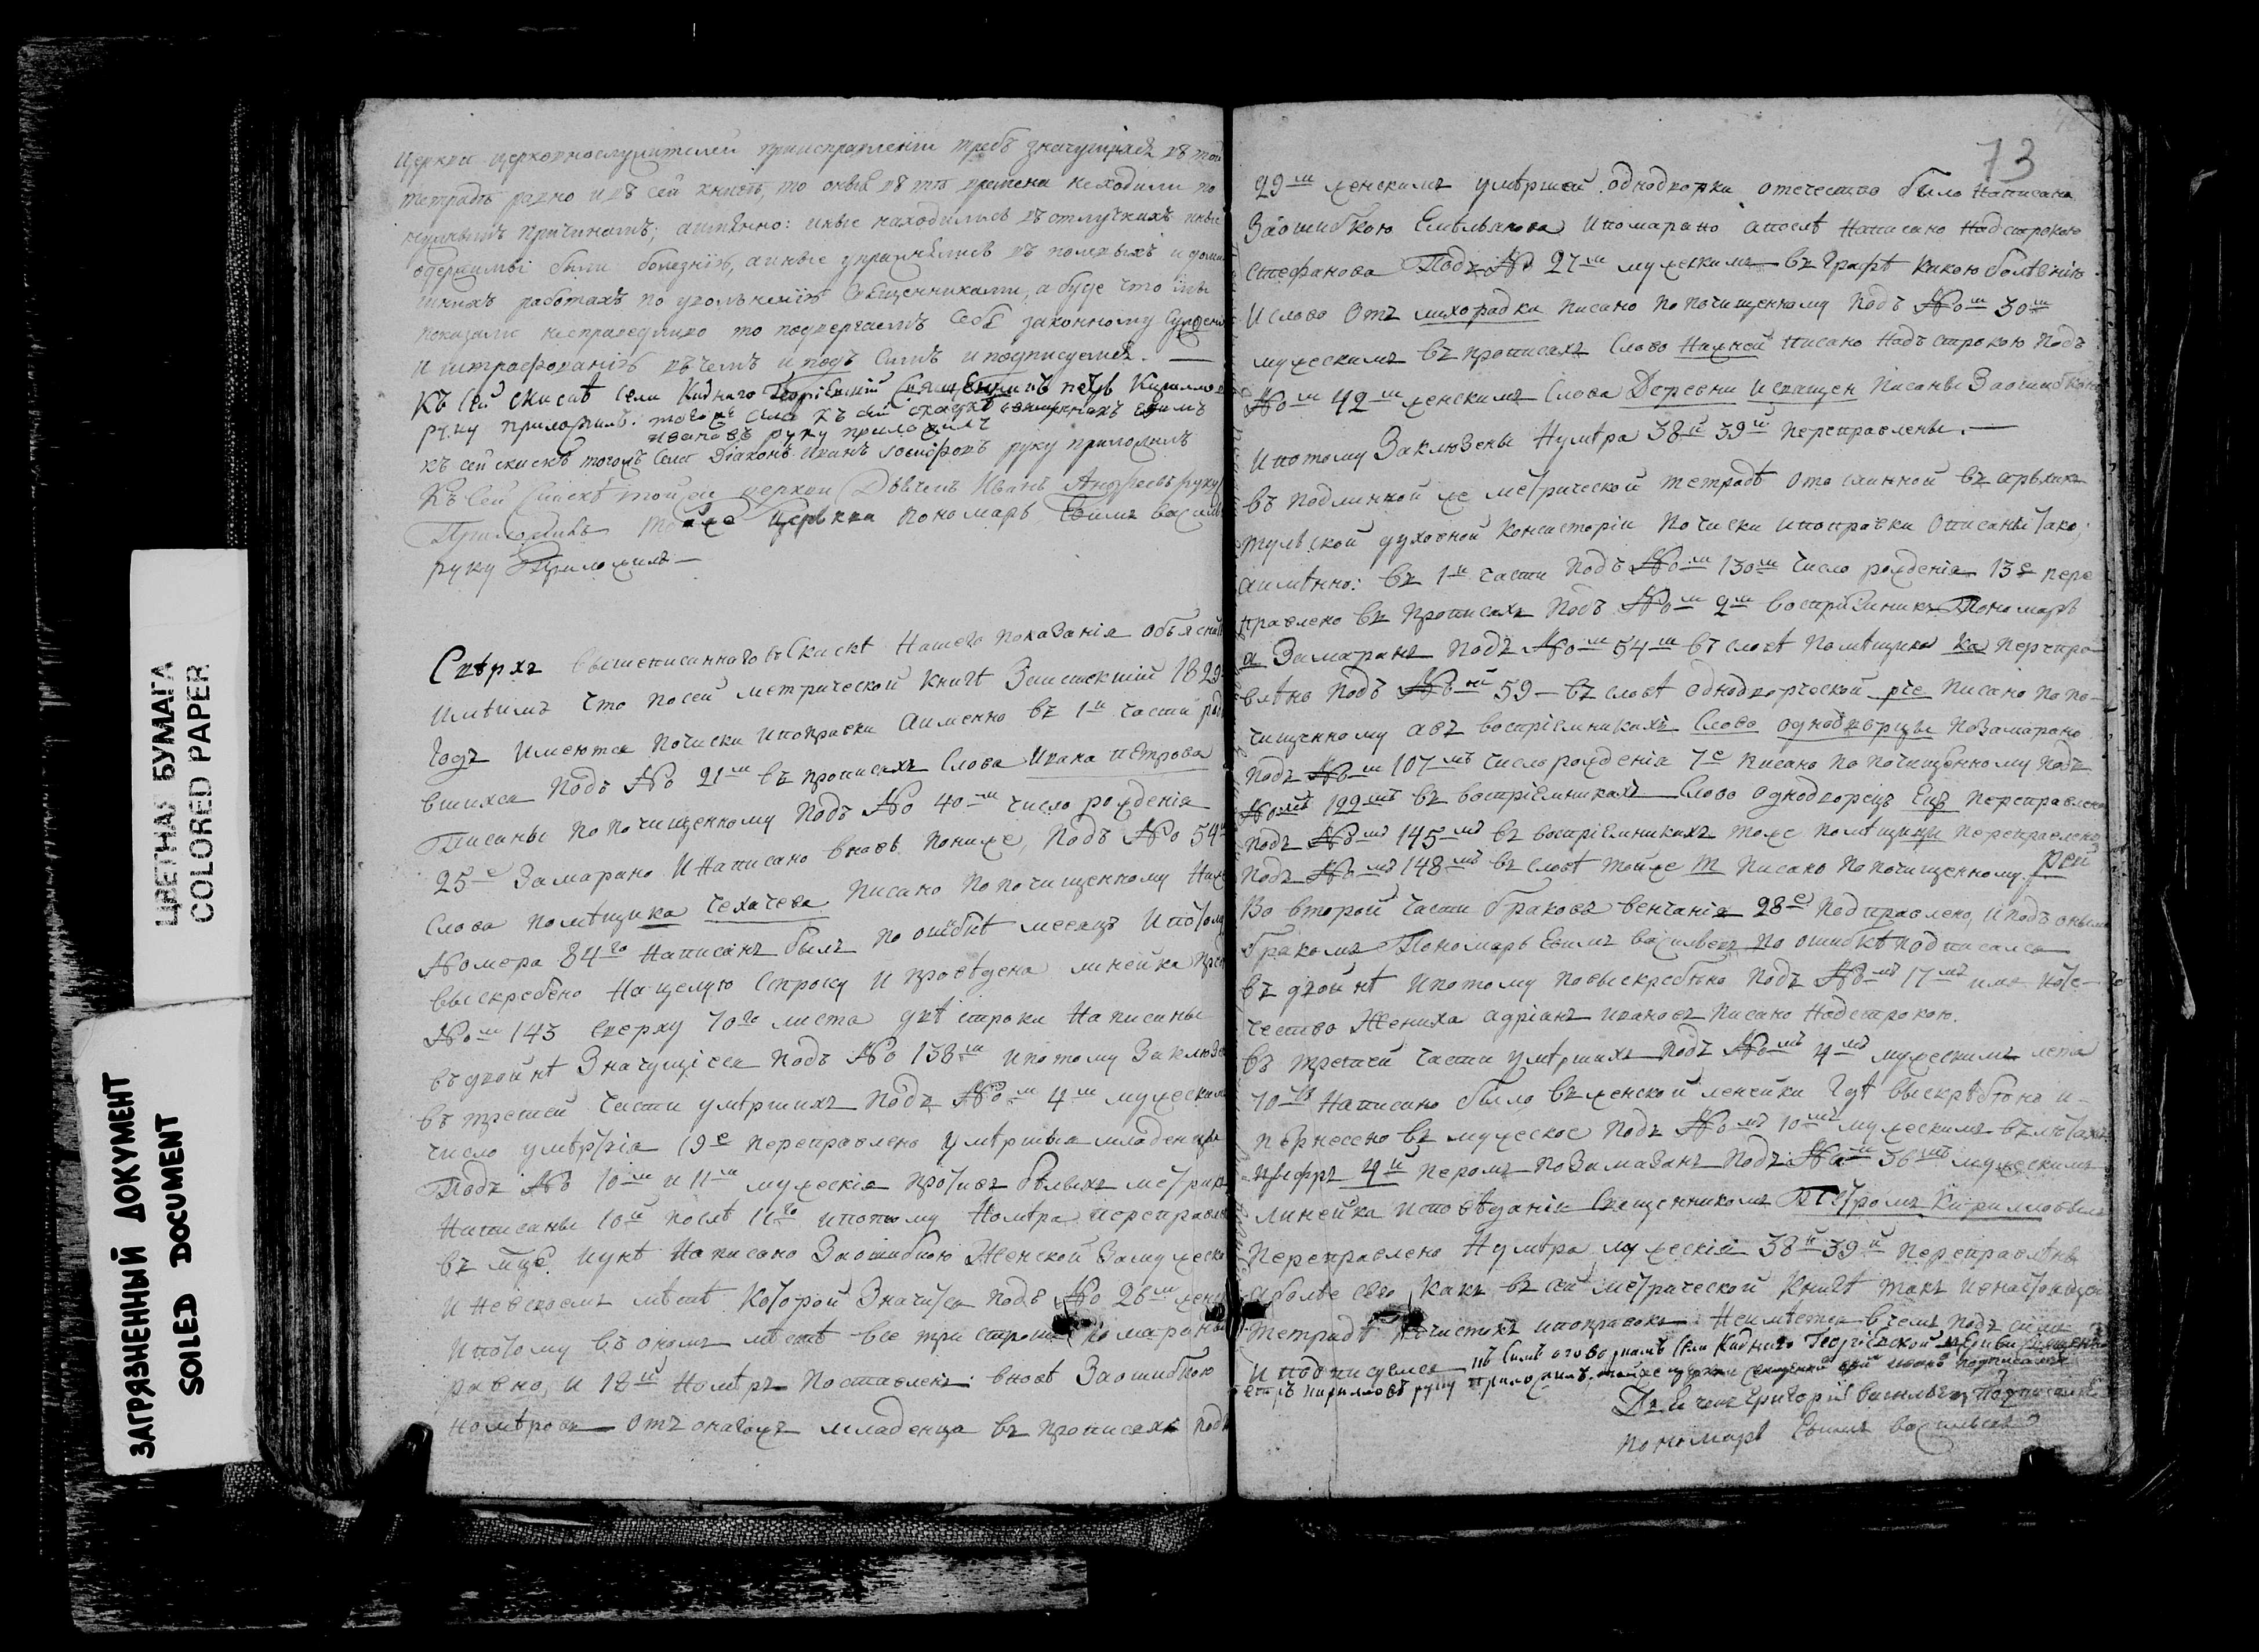 церкви церковнослужителей приисправлении требъ значущихся въ той
тетрадѣ равно и въ сей книгѣ, то оныя въ тѣ времена неходили по
нужнымъ причинамъ; аимѣнно: иные находились въ отлучкахъ иные
одержимы были болезнію, аиные упражнялись въ полевыхъ и дома
шнихъ работахъ по увольненію священниками, а буде что
показали несправедливо то подвергаемъ себя законному сужденію
и штрафованію въ чемъ и подъ симъ и подписуемся. —
Къ сей скаскѣ села Кидного Георгіевскій священникъ петръ Кириллов
руку приложилъ. тогоже села къ сей скаскѣ священникъ
ивановъ руку приложилъ
къ сей скаскѣ тогожъ села Діаконъ Иванъ Іосифовъ руку приложилъ
Къ сей скаскѣ тойже церкви Дьячекъ Иванъ Андреевъ руку
Приложилъ тойже церькви пономарь Ефимъ васильевъ
руку Приложилъ —
Сверхъ вышеписанного въ скаскѣ Нашего показанія объясня
имѣимъ что посей метрической книгѣ Заистекшій 1829
Годъ имеются почиски ипоправки аименно въ 1й части роди
вшихся Подъ №о 21м въ прописахъ Слова Ивана петрова
Писаны по почищенному подъ №о 40м число рожденія
25е Замарано и Написано вновь пониже, подъ №о 54м
Слова помѣщика Чехачева писано по почищенному Ниже
Номера 84го написанъ былъ по ошибкѣ месяцъ ипотому
выскребено на целую строку и проведена линейка пред
№ом 143 сверху 70го листа двѣ строки Написаны
въ двойнѣ Значущіеся подъ №о 138м ипотому Заключе
въ третей части умѣршихъ подъ №ом 4м мужескимъ
число умѣртвія 19е переправлено умѣршыя младенцы
Подъ №о 10м и 11м мужескія противъ бѣлыхъ метрикъ
написаны 10й послѣ 11го ипотому Номѣра переправле
въ мцѣ июнѣ Написано Заошибкою Женской Замужеско
и невсвоемъ мѣстѣ который Значится подъ №о 26м женс
ипотому въ ономъ мѣстѣ все три строки помараны
равно, и 18й номѣръ поставленъ вновѣ Заошибкою
номѣровъ отъ онагожъ младенца въ прописяхъ подъ
73
29м женскимъ умѣршей однодворки отечество было написано
Заошибкою Емельянова ипомарано апослѣ написано надстрокою
Стефанова Подъ №о 27м мужескимъ въ графѣ какою болѣзнію
и слово отъ лихорадки писано по почищенному подъ №ом 30м
мужескимъ въ прописахъ слово Нажной писано надъ строкою подъ
№ом 42м женскимъ Слова Деревни и священ писаны Заошибкою
ипотому Заключены Нумѣра 38й 39й переправлены. —
въ подлинной же метрической тетрадѣ отосланной въ архивъ
тульской духовной Консисторіи почиски ипоправки описаны тако;
аимѣнно: въ 1й части подъ №ом 130м число рожденія 13е пере
правлено въ прописахъ подъ №ом 2м воспріемникъ Пономарь
а Замаранъ подъ №ом 54м въ словѣ помѣщика ка перепра
влѣно подъ №ом 59 — въ словѣ однодворческой рче писано по по-
чищенному авъ воспріемникахъ слово однодворцы позамарано
подъ №ом 107мъ число рожденія 7е писано по почищенному подъ
№омъ 122мъ въ воспріемникахъ слово однодворецъ ецъ переправлено
подъ №омъ 145мъ въ воспріемникахъ тоже помѣщицы переправлено
подъ №омъ 148мъ въ словѣ тойже т писано по почищенному
Во второй части браковъ венчанія 28е подправлено, иподъ онымъ
бракомъ Пономарь Ефимъ васильевъ по ошибкѣ подписался
въ двойнѣ ипотому повыскребѣно подъ №омъ 17мъ имя иоте-
чество Жениха адріанъ ивановъ писано надстрокою.
въ третей части умѣршихъ подъ №омъ 4мъ мужескимъ лета
70ть написано было въ женской ленейки гдѣ выскрѣбѣно и
перенесено въ мужеское подъ №омъ 10мъ мужескимъ въ лѣтахъ
цыфръ 4й перомъ позамазанъ подъ №ом 36мъ мужескимъ
линейка исповѣданіи священникомъ Петромъ Кирилловымъ
переправлено Нумѣра мужескія 38й 39й переправлѣны
аболѣе сего какъ въ сей метрической книгѣ такъ инастоящей
тетрадѣ почистокъ ипоправокъ неимѣется въ чемъ подъ симъ
и подписуемся къ симъ оговоркамъ села Кидного Георгіевской церкви священникъ
петръ кирилловъ руку приложилъ. тойже церкви священникъ иванъ подписался
Дьячекъ Григорій васильевъ Подписался
пономарь Ефимъ васильевъ
ЦВЕТНАЯ БУМАГА
COLORED PAPER
ЗАГРЯЗНЕННЫЙ ДОКУМЕНТ
SOILED DOCUMENT